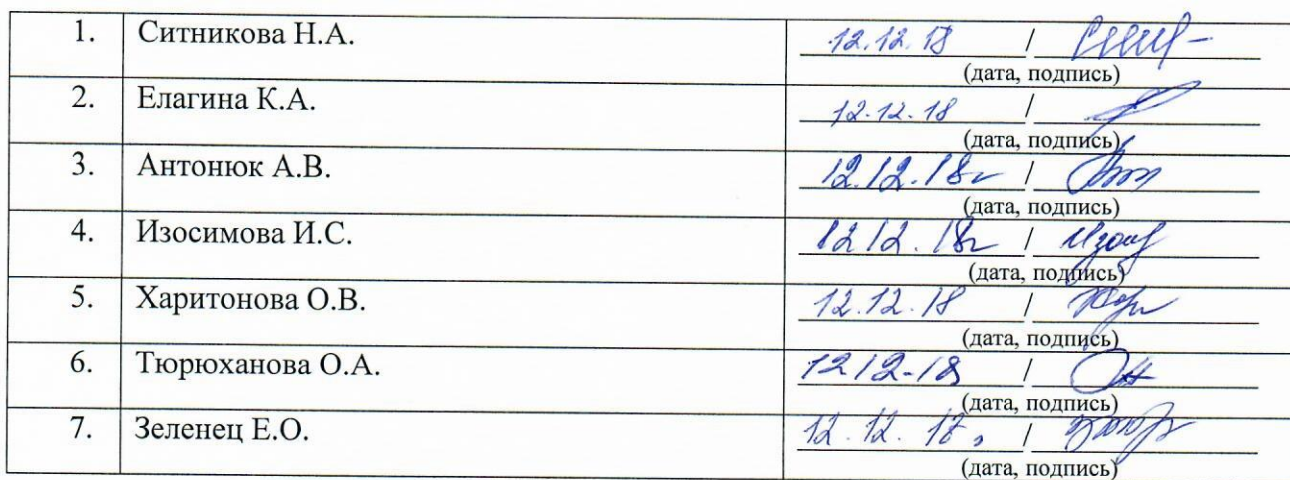 1. Ситникова Н.А. 12.12.18 /
(дата, подпись)
2. Елагина К.А. 12.12.18 /
(дата, подпись)
3. Антонюк А.В. 12.12.18г /
(дата, подпись)
4. Изосимова И.С. 12 12. 18г /
(дата, подпись)
5. Харитонова О.В. 12.12.18 /
(дата, подпись)
6. Тюрюханова О.А. 12 12-18 /
(дата, подпись)
7. Зеленец Е.О. 12.12. /
(дата, подпись)